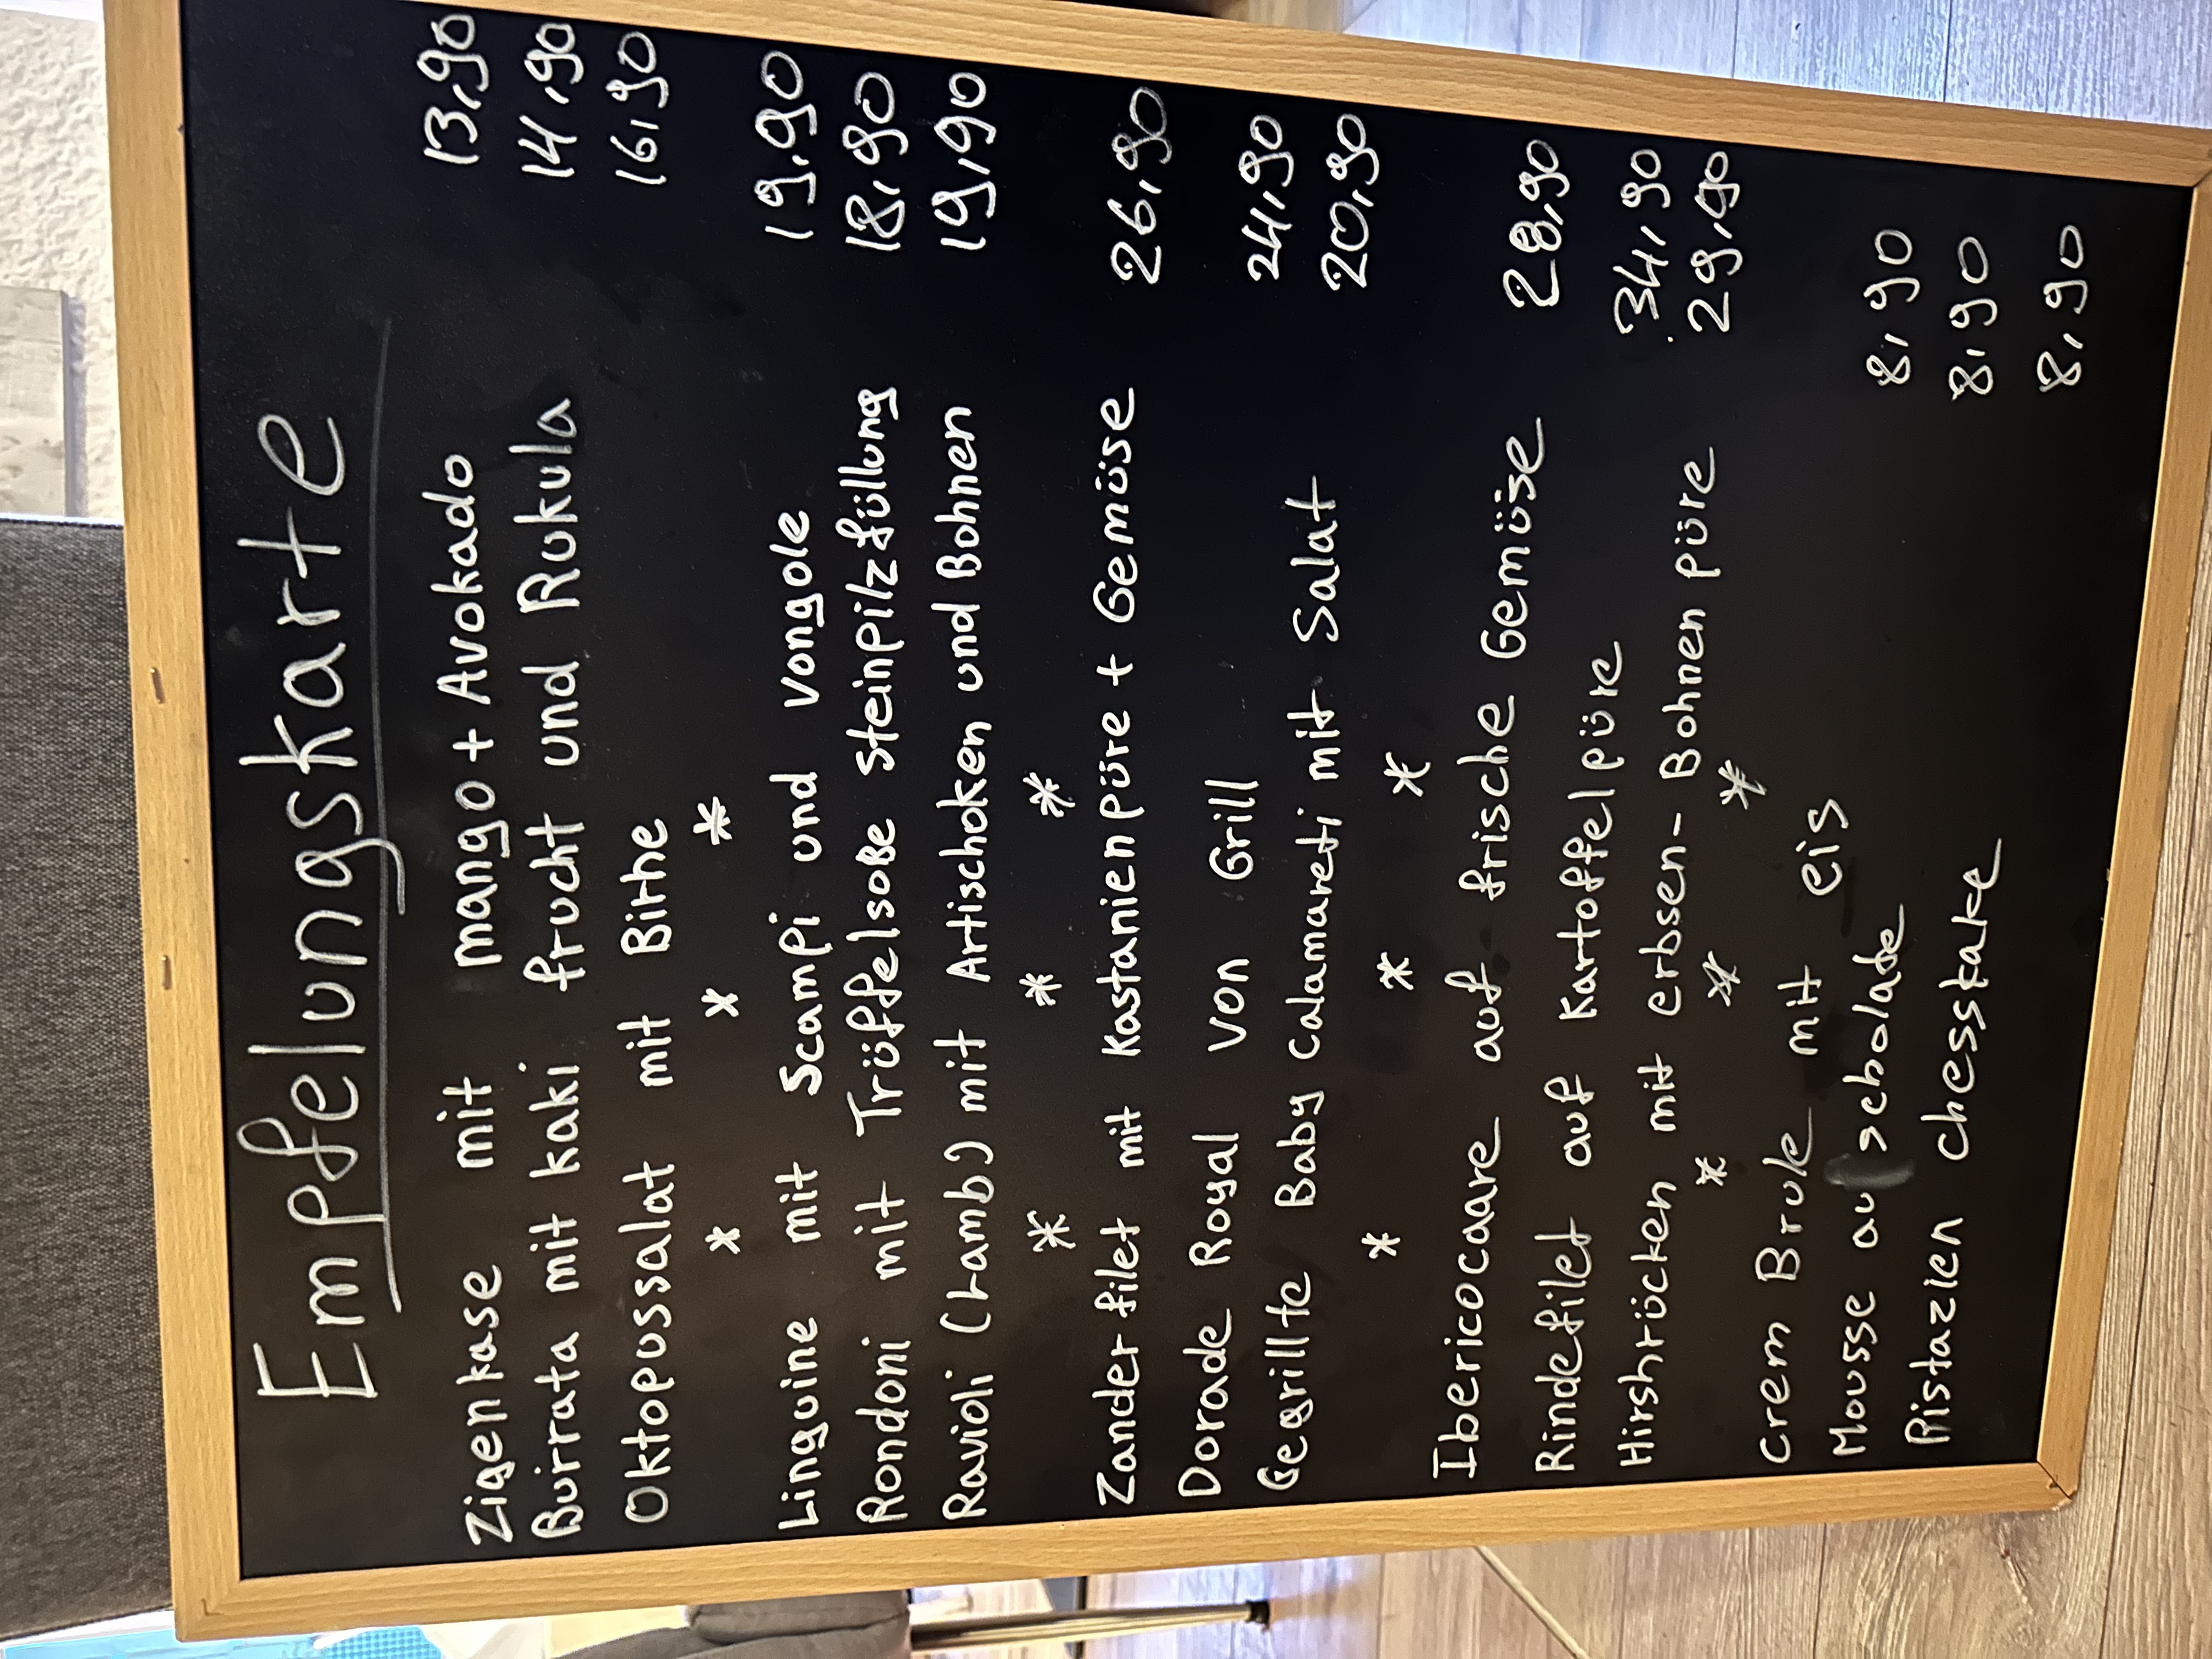 Empfelungskarte
Zigenkase mit mango + Avokado 13,90
Burrata mit kaki frucht und Rukula 14,90
Oktopussalat mit Birne 16,90
* * *
Linguine mit Scampi und vongole 19,90
Rondoni mit Trüffelsoße steinpilzfüllung 18,90
Ravioli (Lamb) mit Artischoken und Bohnen 19,90
* * *
Zanderfilet mit Kastanienpüre + Gemüse 26,90
Dorade Royal von Grill 24,90
Gegrillte Baby Calamareti mit Salat 20,90
* * *
Ibericocaare auf frische Gemüse 28,90
Rindefilet auf Kartoffelpüre 34,90
Hirshrücken mit erbsen-Bohnen püre 29,90
* * *
Crem Brule mit eis 8,90
Mousse au scholade 8,90
Pistazien chesskake 8,90